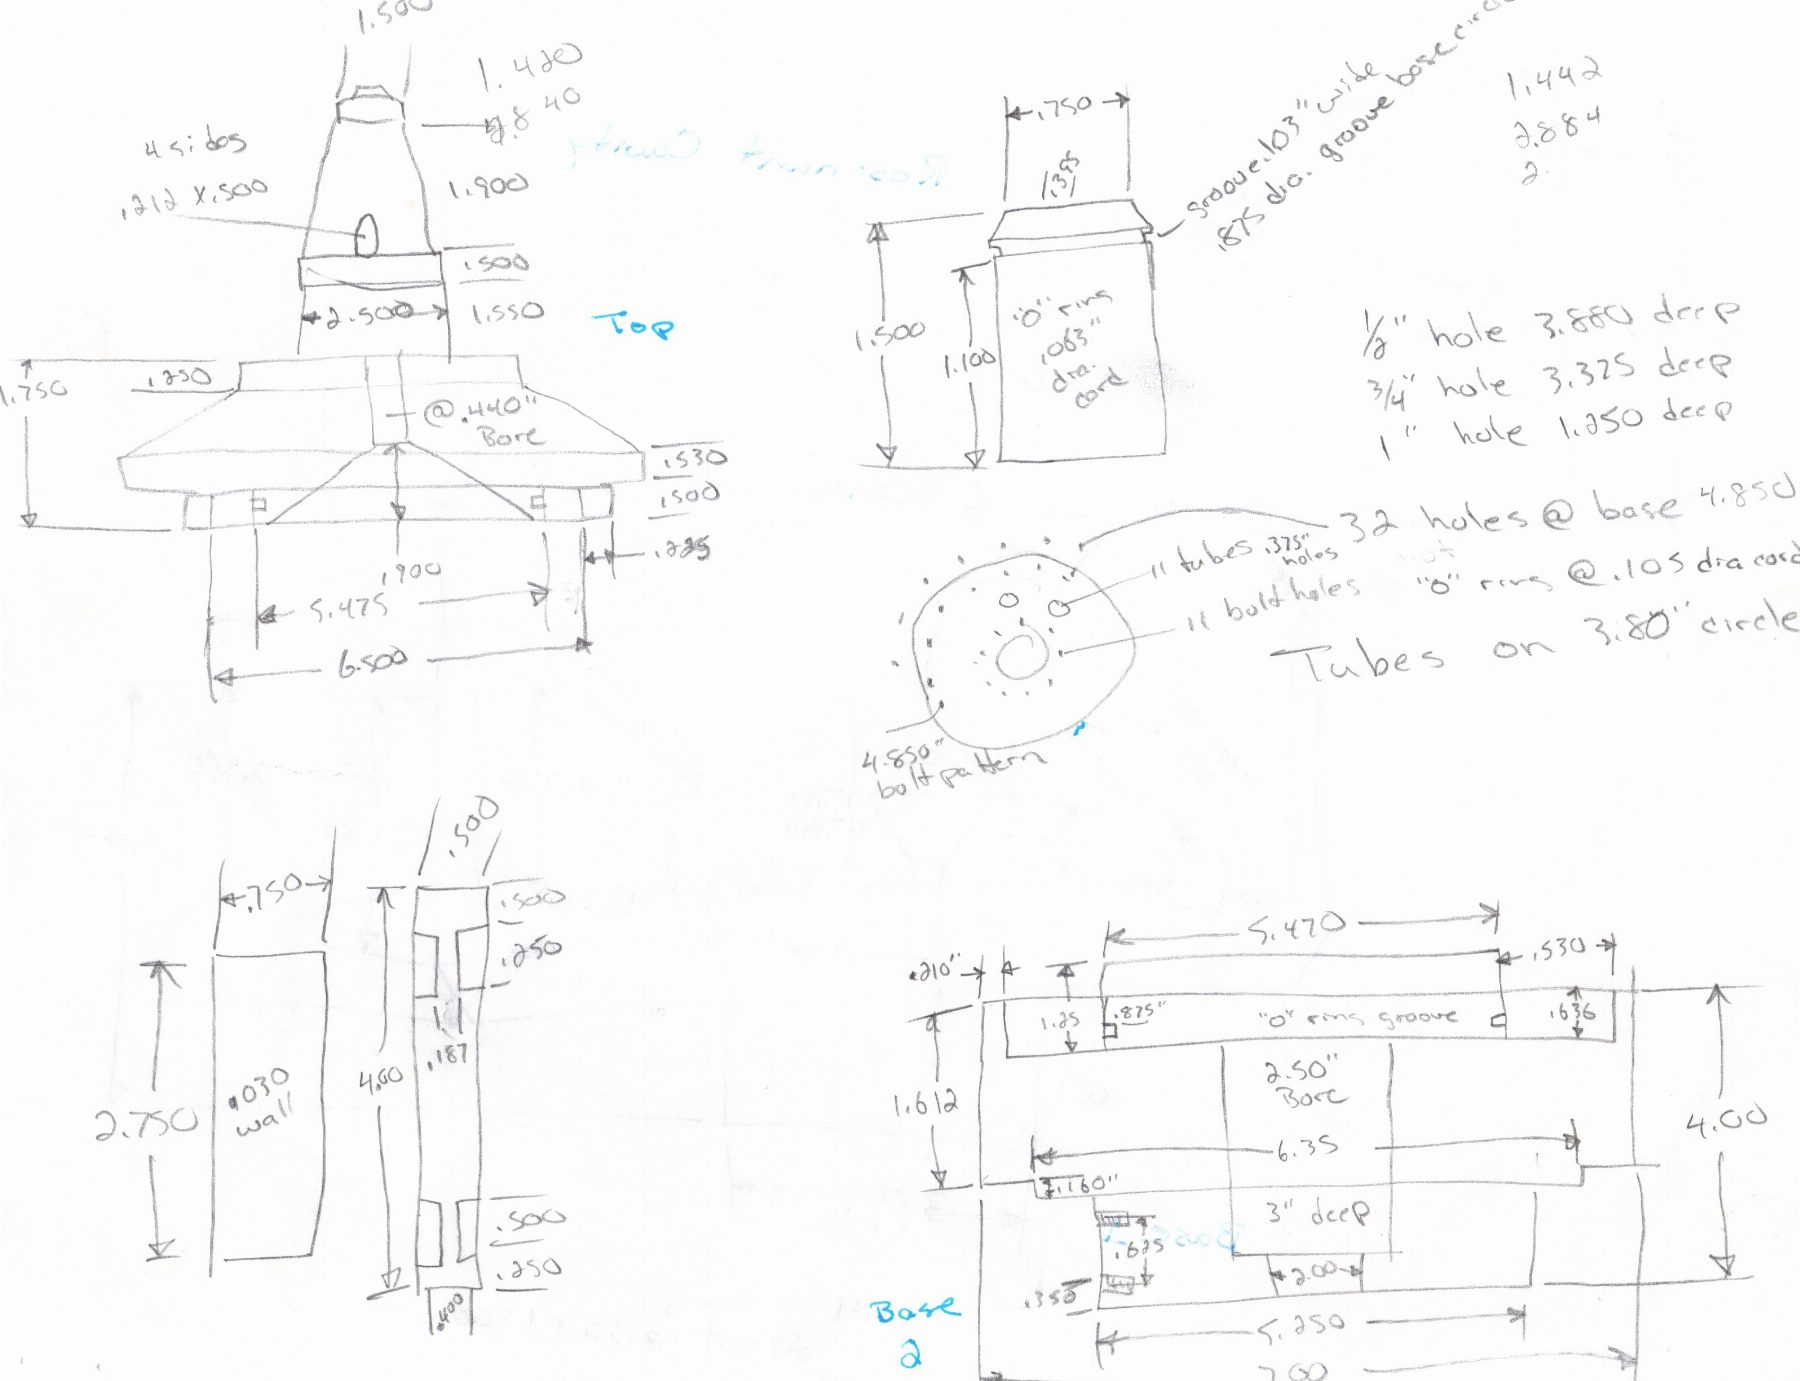 1.500
1.420
4 sides
.212 x .500
1.900
.500
2.500
1.550
Top
1.750
.250
@ .440"
Bore
.530
.500
.225
.900
5.475
6.500
.750
groove .103" wide
.875 dia. groove base circle
1.442
2.884
2.
1.500
1.100
"O" ring
.063"
dia.
cord
1/2" hole 3.880 deep
3/4" hole 3.325 deep
1" hole 1.250 deep
32 holes @ base 4.850
11 tubes .375"
holes
11 bolt holes
"O" ring @ .105 dia cord
Tubes on 3.80" circle
4.850"
bolt pattern
.750
2.750
.030
wall
.500
.500
.250
.187
4.00
.500
.250
.400
5.470
.530
.210"
1.25
.875"
"O" ring groove
.636
1.612
2.50"
Bore
6.35
4.00
.160"
3" deep
.625
2.00
.350
Base
2
5.250
7.00